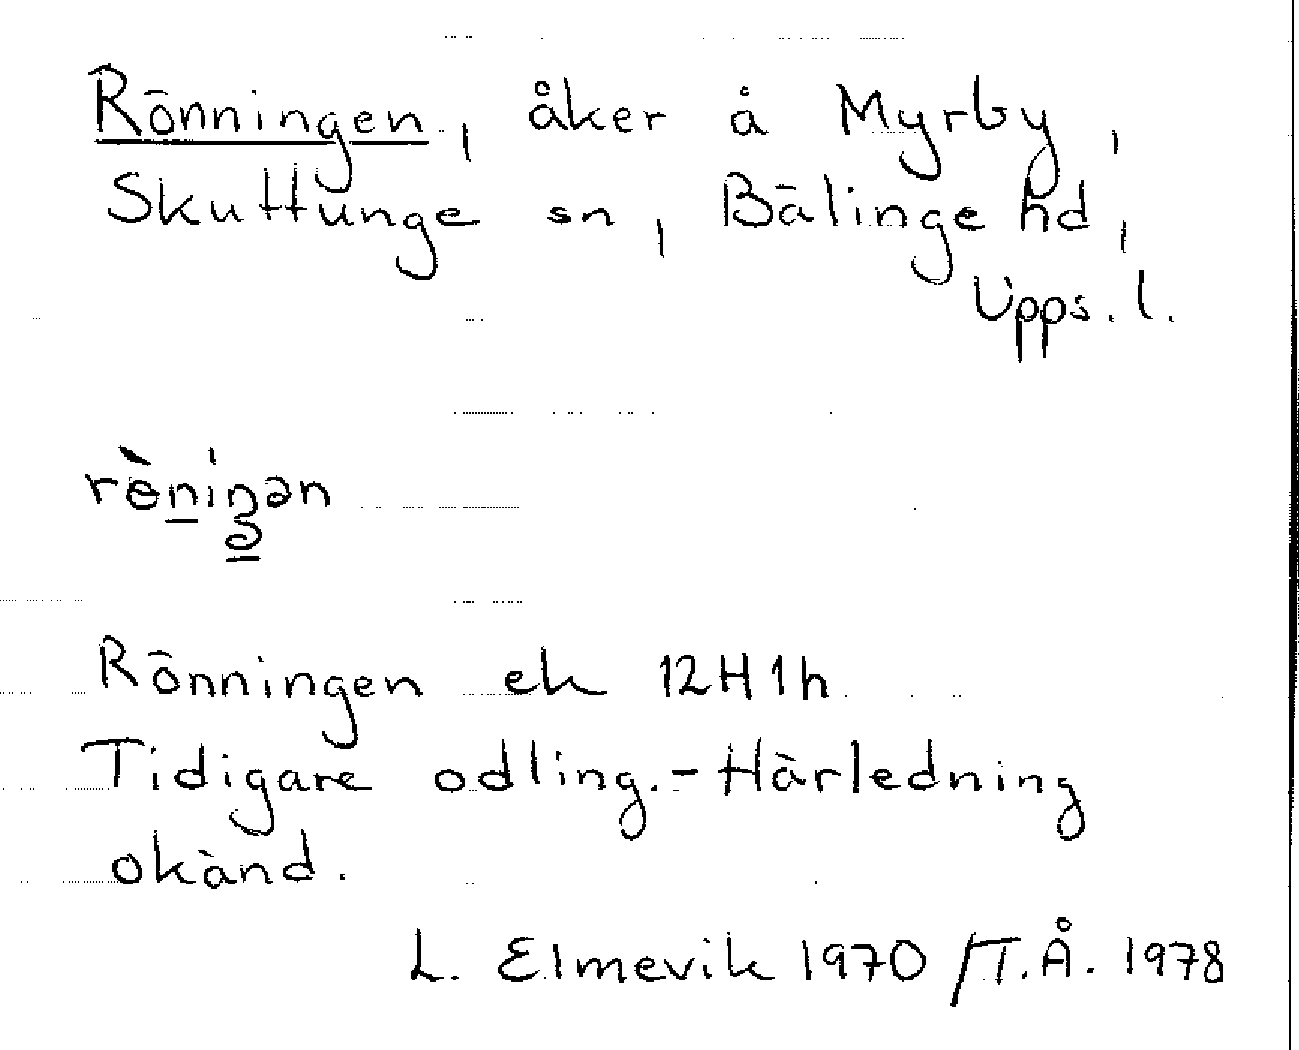 Rönningen, åker å Myrby,
Skuttunge sn, Bälinge hd,
Upps. l.
Rönningen ek 12H1h
Tidigare odling. - Härledning
okänd.
L. Elmevik 1970 /T.Å. 1978